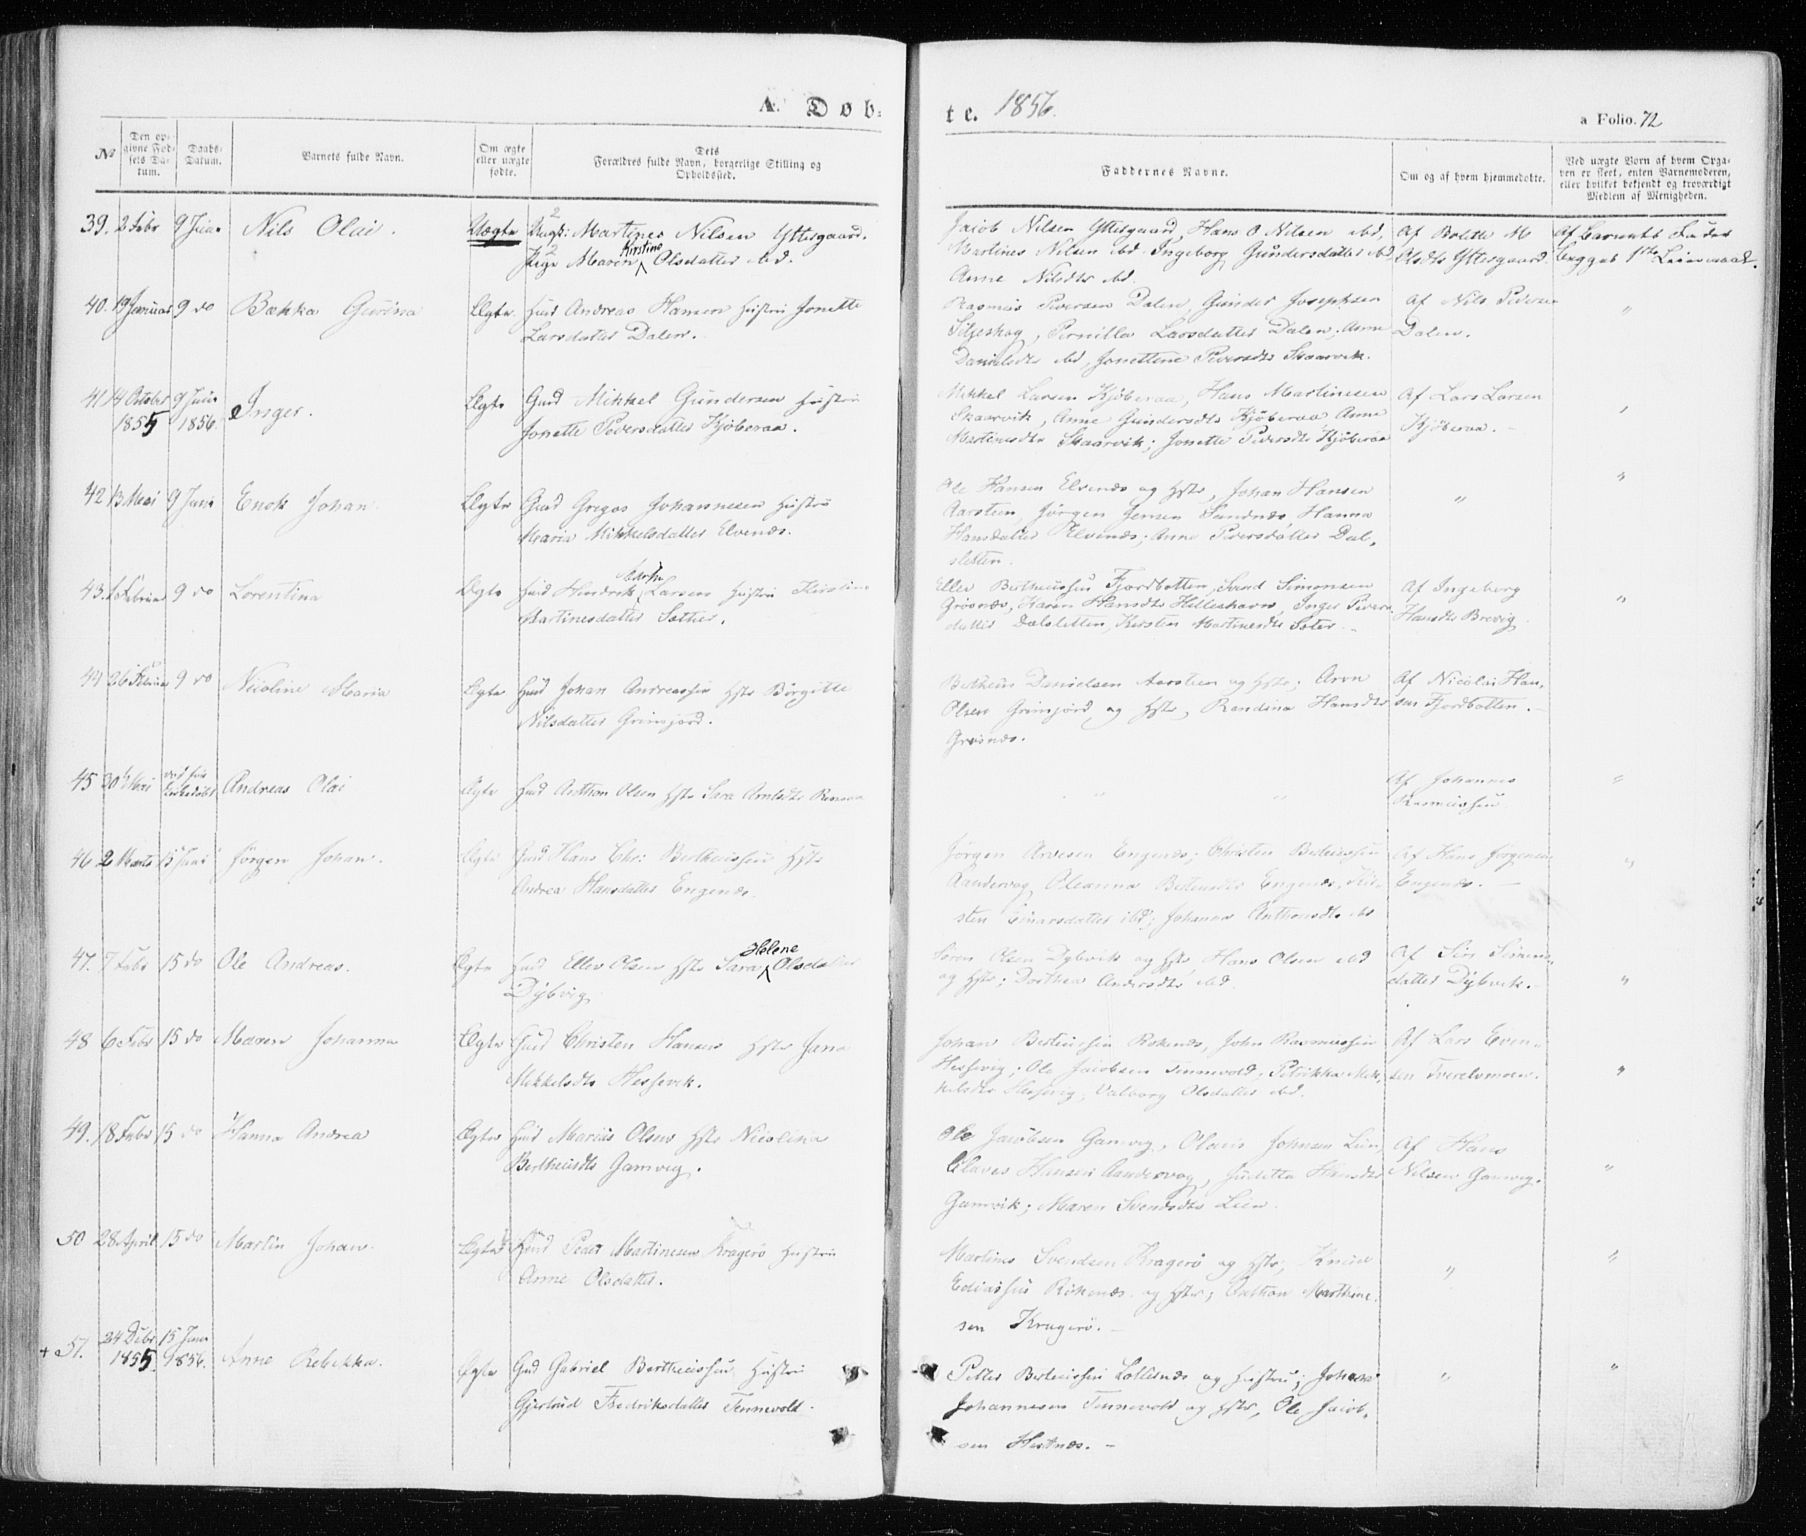 A. Døb-
te. 1856.
a Folio. 72
No
Den op-
givne Fød-
sels Da-
tum.
Daabs-
Datum.
Barnets fulde Navn.
Om ægte
eller uægte
fødte.
Dets
Forældres fulde Navn, borgerlige Stilling og
Opholdssted.
Faddernes Navne.
Om og af hvem hjemmedøbte.
Ved uægte Børn af hvem Opga-
ven er skeet, enten Barnemoderen,
eller hvilket bekjendt og troværdigt
Medlem af Menigheden.
39. 2 Febr 9 Juni Nils Olai. Uægte Martines Nilsen Yttesgaard.
Pige Maren Kirstine Olsdatter ibd.
Jacob Nilsen Yttesgaard, Hans O Nilsen ibd,
Martines Nilsen ibd. Ingeborg Gundersdatter ibd
Anne Nilsdtr ibd.
Af Bolette M
Olsdtr Yttesgaard
Af Barnets Fader
begges 1ste Leiermaal.
40. 19 Januar 9 do Bækka Gurina Ægte Husd Andreas Hansen Hustru Jonette
Larsdatter Dalen.
Rasmus Pedersen Dalen, Gunder Josephsen
Pernilla Larsdatter Dalen, Anne
Danielsdtr ibd, Jonettine Pedersdtr Skaarvik.
Af Nils Pedersen
Dalen.
"
41 14 October 9 Juni
1855 1856. Inger. Ægte Gmd Mikkel Gundersen Hustru
Jonette Pedersdatter Kjøberaa.
Mikkel Larsen Kjøberaa, Hans Martinesen
Skaarvik, Anne Gundersdtr Kjøberaa, Anne
Martinesdtr Skaarvik; Jonette Pedersdtr Kjøberaa
Af Lars Larsen
Kjøberaa. -
42 13 Mai 9 Juni Enok Johan. Ægte Gmd Gregos Johannesen Hustru
Maria Mikkelsdatter Elvenes.
Ole Hansen Elvenæs og Hstr, Johan Hansen
Aarsteen, Jørgen Jensen Sandnæs Hanna
Hansdatter Elvenæs; Anne Pedersdatter Dal-
sletten.
"
"
43. 1 Februar 9 do Lorentina Ægte Husd Hendrik Larsen Hustru Kirstine
Martinesdatter Sæther.
Ellev Bertheussen Fjordbotten, Simonsen
Grovnæs, Karen Hansdtr Hilleshavn, Inger Peders
datter Dalsletten, Kirsten Martinesdtr Sæter -
Af Ingeborg
Hansdtr Brevig.
"
44 26 Februar 9 do Nicoline Maria Ægte Husd Johan Andreassen Hstr Birgitte
Nilsdatter Grimjord.
Bertheus Danielsen Aarsteen og Hstr; Arn
Olsen Grimjord og Hstr, Randina Hansdtr
Grovnæs.
Af Nicolai Han-
sen Fjordbotten. -
45 30 Mai Andreas Olai Ægte Husd Anthon Olsen Hstr Sara Arntsdtr
" "
Af Johannes
Rasmussen
"
46 2 Marts 15 Juni Jørgen Johan. Ægte Gmd Hans Chr: Bertheussen Hstr
Andrea Hansdatter Engenæs.
Jørgen Arnesen Engenæs; Christen Berteussen
Sandevog Oleanna Berteusdtr Engenæs, Kir-
sten Einarsdatter ibd; Johanna Anthonsdtr ibd
Af Hans Jørgensen
Engenæs. -
"
47. 7 Febr 15 do Ole Andreas. Ægte Husd Ellev Olsen Hstr Sara Helene Olsdatter
Dybvig
Søren Olsen Dybvik og Hstr, Hans Olsen ibd
og Hstr; Dorthea Andersdtr ibd.
Af Siri Simons-
datter Dybvik. -
"
48 6 Febr 15 do Maren Johanna Ægte Gmd Christen Hansen Hstr Jana
Mikkelsdtr Hessevik.
Johan Berteussen Roknæs, John Rasmussen
Hessevig; Ole Jacobsen Tennevold, Petrikka Mik-
kelsdtr Hessevig, Valborg Olsdatter ibd.
Af Lars Even-
sen Tverelvmoen.
"
49. 18 Febr 15 do Hanna Andrea Ægte Husd Marius Olsen Hstr Nicolina
Bertheusdtr Gamvig.
Ole Jacobsen Gamvig, Olaus Johnsen Lien,
Claves Hansen Sandevog, Juditta Hansdtr
Gamvik; Maren Svendsdtr Lien.
Af Hans
Nilsen Gamvig.
"
50 28 April 15 do Martin Johan. Ægte Husd Peder Martinesen Kragerø Hustru
Anne Olsdatter.
Martines Svendsen Kragerø og Hstr; Knud
Ediassen Roknæs og Hstr; Anthon Marthine-
sen Kragerø. -
"
"
+ 51. 24 Decbr 15 Juni
1855 1856. Anne Rebekka. Ægte Gmd Gabriel Bertheussen Hustru
Gjertrud Fredriksdatter Tennevold.
Petter Berteussen Løksenæs og Hustru; Johan
Johannesen Tennevold og Hstr, Ole Jacob-
sen Hestnæs. -
"
"